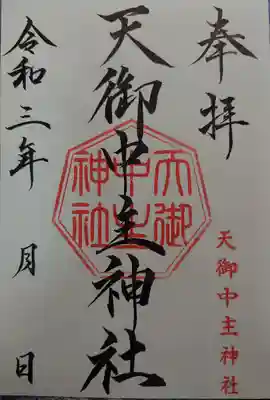 奉拝
天御中主神社
天御
中主
神社
天御中主神社
令和三年 月 日